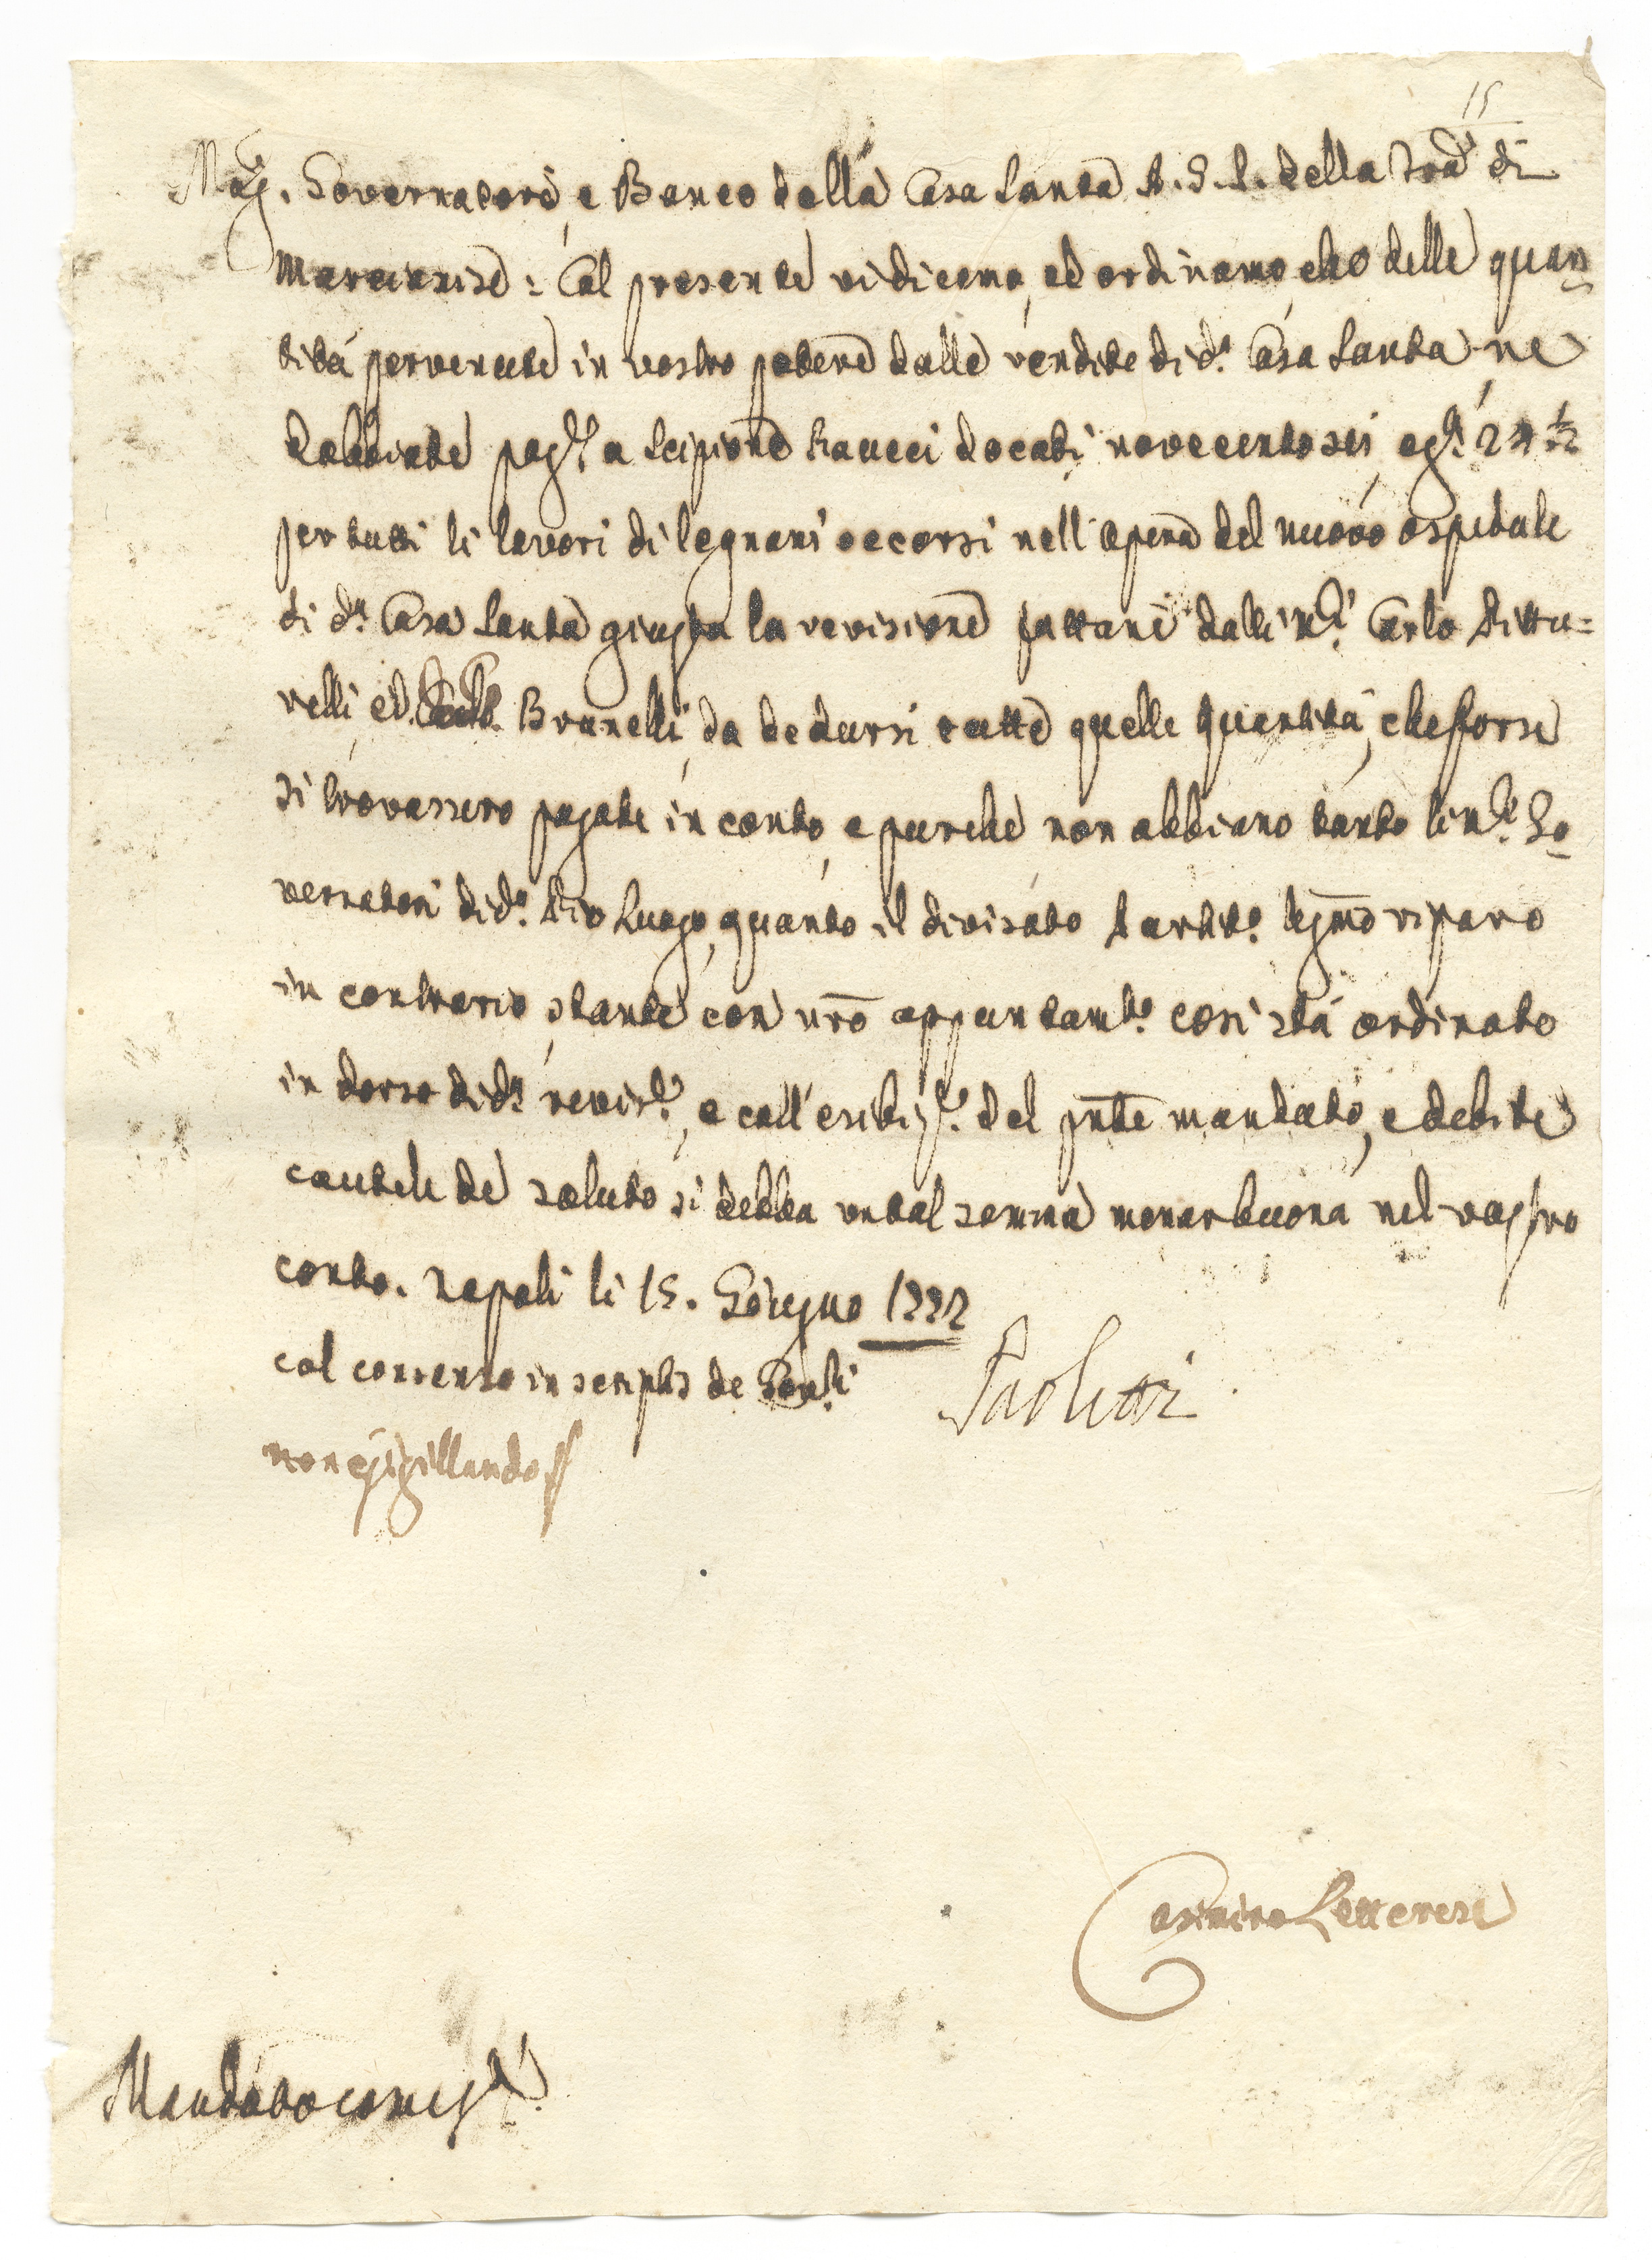 15
Mag.ci Governatori, e Banco della Casa Santa A. G. P. della Trã di
Marcianise: Col presente vi dicemo, ed ordinamo, che delle quan
tità pervenute in vostro potere dalle rendite di d.ª Casa Santa ne
dobbiate pag.re a Scipione Raucci docati novecento sei, e g.ª 24 ½
per tutti li lavori di legnami occorsi nell'opera del nuovo ospedale
di d.ª Casa Santa giusta la revisione fattane dalli M.ci Carlo Pittu=
relli, ed Brunelli, da dedursi tutte quelle quantità, che forse
si trovassero pagate in conto, e purche non abbiano tanto li M.ci Go
vernatori di d.º Pio Luogo, quanto il divisato Partit.º legmõ riparo
in contrario, stante con nrõ appuntam.to così stà ordinato
in dorso di d.ª revis.e, e coll'esibiz.e del pñte mandato, e debite
cautele de soluto si debba un tal somma menar buona nel vostro
conto. Napoli li 15. Giugno 1772
col consenso in scriptis de Gov.ri
Paoletti
non sigillando
Casimiro Letterese
Mandato come s.ª